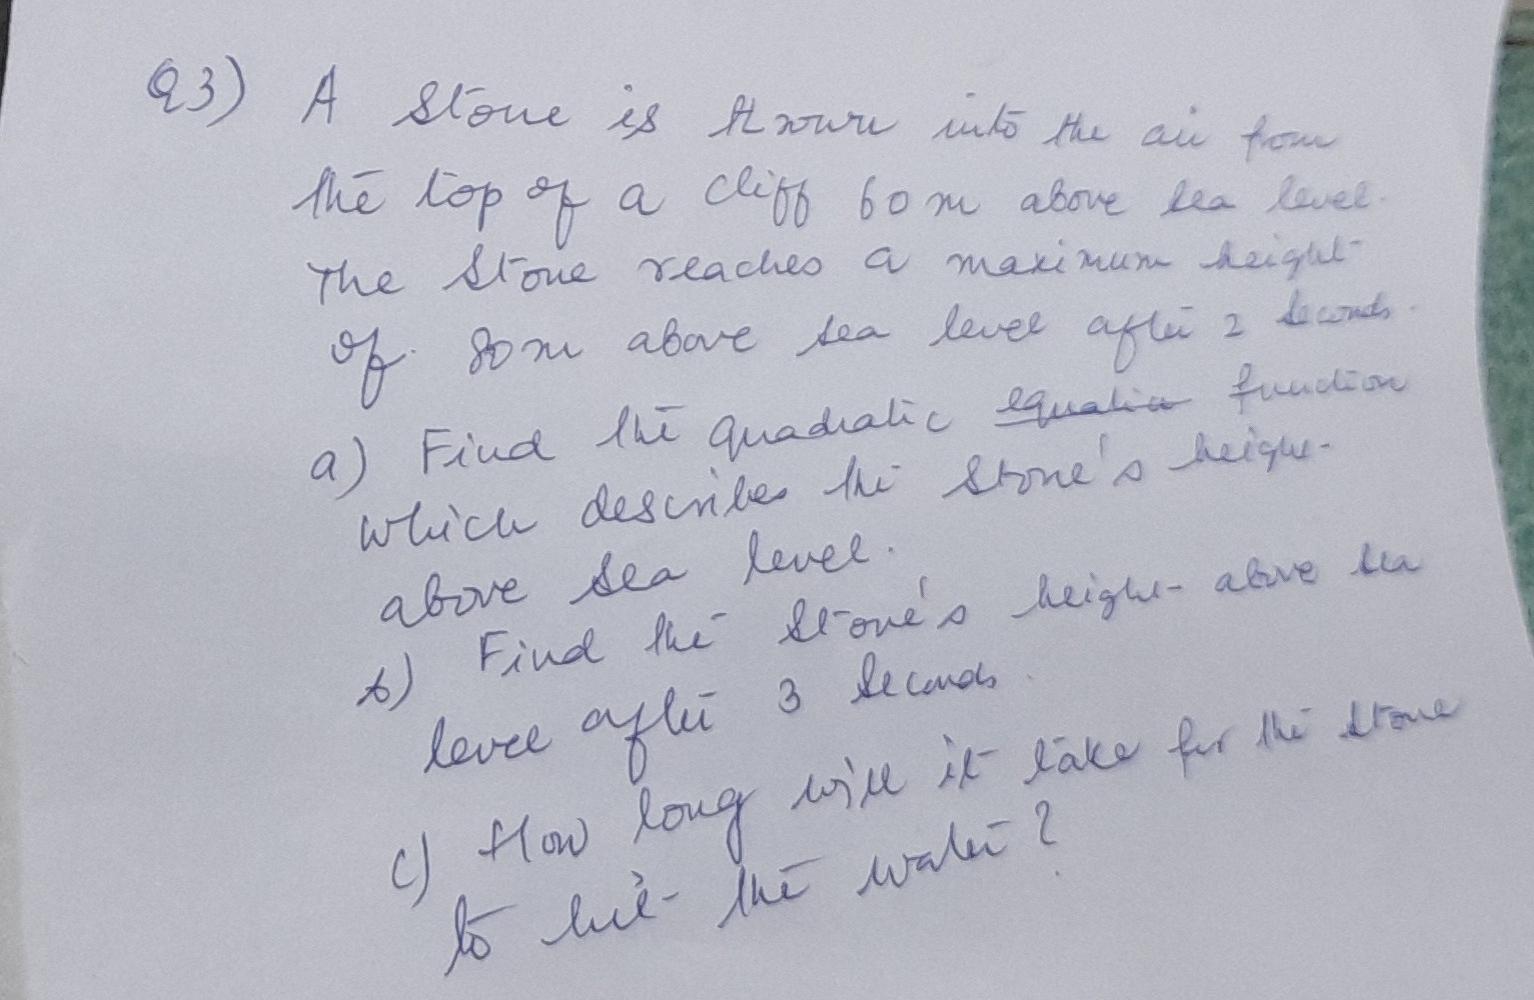 Q3) A stone is thrown into the air from
the top of a cliff 60 m above sea level.
The stone reaches a maximum height
of 80 m above sea level after 2 seconds.
a) Find the quadratic equation function
which describes the stone's height
above sea level.
b) Find the stone's height above sea
level after 3 seconds.
c) How long will it take for the stone
to hit the water?